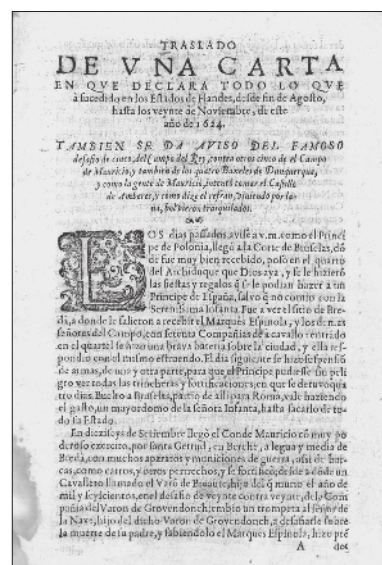 TRASLADO
DE VÑA CARTA
EN QVE DECLARA TODO LO QVE
à sucedido en los Estados de Flandes, desde fin de Agosto,
hasta los veynte de Nouiembre, de este
año de 1624.
TAMBIEN SE DA AVISO DEL FAMOSO
desafio de cinco, del Campo del Rey, contra otros cinco de el Campo
de Mauricio, y tambien de los quatro Baxeles de Dunquerque,
y como la gente de Mauricio, intentò tomar el Castillo
de Amberes, y como dize el refran, viniendo por la-
na, boluieron trasquilados.
LOS dias passados auisè a v.m. como el Princi
pe de Polonia, llegò a la Corte de Bruselas, dõ
de fue muy bien recebido, posò en el quarto
del Archiduque que Dios aya, y se le hizierõ
las fiestas y regalos q̃ se le podian hazer a un
Principe de España, saluo q̃ no comio con la
Serenissima Infanta. Fue a ver el sitio de Bre-
dà, a donde le salieron a recebir el Marques Espinola, y los demas
señores del Campo, con setenta Compañias de a cauallo: entrado
en el quartel se hizo una braua bateria sobre la ciudad, y ella res-
pondio con el mismo estruendo. El dia siguiente se hizo suspensiõ
de armas, de una y otra parte, para que el Principe pudiesse sin peli
gro ver todas las trincheras y fortificaciones, en que se detuuo qua
tro dias. Buelto a Bruselas, partio de alli para Roma, vale haziendo
el gasto, un mayordomo de la señora Infanta, hasta sacarlo de to-
do su Estado.
En dieziseys de Setiembre llegò el Conde Mauricio cõ muy po
deroso exercito, por Santa Gertrud, en Berche, a legua y media de
Breda, con muchos aparatos y municiones de guerra, assi de bar-
cas, como carros, y otros pertrechos, y se fortificò; desde a dõde un
Cauallero llamado el Varõ de Breaute, hijo del q̃ murio el año de
mil y seyscientos, en el desafio de veynte contra veynte, de la Com
pañia del Varon de Grouendonch; embiò un trompeta al señor de
la Naue, hijo del dicho Varon de Grouendonch, a desafiarle sobre
la muerte de su padre, y sabiendolo el Marques Espinola, hizo pre
A del